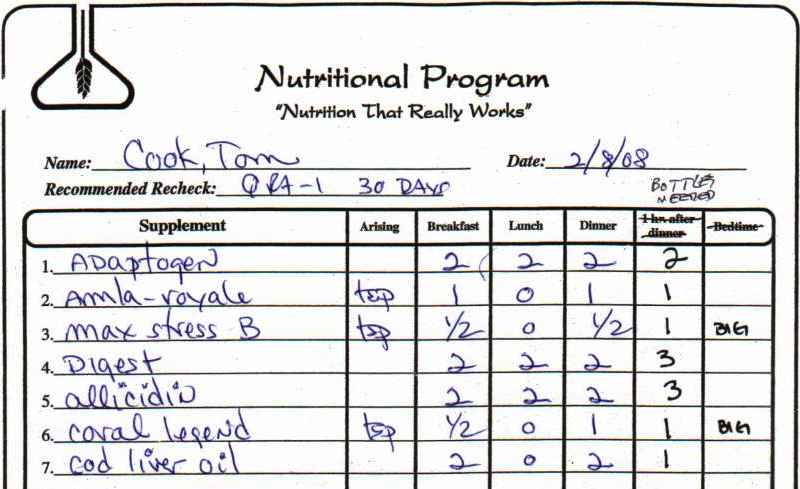 Nutritional Program
"Nutrition That Really Works"
Name: Cook, Tom Date: 2/8/08
Recommended Recheck: QRA-1 30 DAYS BOTTLES NEEDED
Supplement Arising Breakfast Lunch Dinner 1 hr. after dinner Bedtime
1. ADaptogen 2 2 2 2
2. Amla-royale tsp 1 0 1 1
3. max stress B tsp 1/2 0 1/2 1 BIG
4. DIgest 2 2 2 3
5. allicidin 2 2 2 3
6. coral legend tsp 1/2 0 1 1 BIG
7. cod liver oil 2 0 2 1